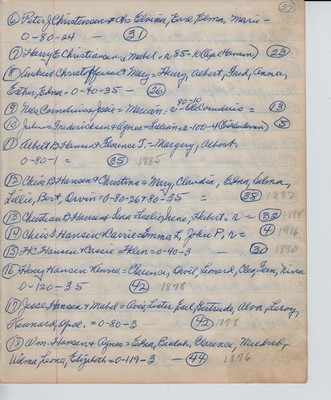 37
⑥ Peter J Christensen + Mrs Elvina, Earl, Elma, Marie -
0-80-24 - 31
⑦ Harry E Christiansen + Mabel - r 85-10 (Hansen) 23
⑧ Andrew Christoffersen + Mary = Henry, Albert, Fred, Anna,
Esther, Edna - 0-40-35 - 26
⑨ Nels Cornelius + Josie = Marian: r 80-10 Cornelius = 13
⑩ Julius Frederickson + Agnes = Lillian = 100-4 5
⑪ Albert B Hansen + Florence T. = Margery, Albert.
0-80-1 = 35 1985
⑫ Chris B Hansen + Christina = Mary, Claudia, Edna, Selma,
Lillie, Bert, Orvin = 0-80-26 + 80-35 = 38 1882
⑬ Christian B Hansen + Lena = Leslie, Hubert. r = 32
⑭ Chris S Hansen + Carrie = Emma L, John P. r = 4 1916
⑮ F C Hansen + Cassie = Helen = 0-40-3 - 30 1890
⑯ Henry Hansen + Anna = Clarence, Orvil, Leonard, Clay, Fern,
0-120-35 42 1878
⑰ Jesse Hansen + Mabel = Avis, Lester, Earl, Gertrude, Alva, Leroy,
Kennard, Opal. = 0-80-3 42 1878
⑱ Wm. Hansen + Agnes = Edna, Beulah, Clarence, Mildred,
Wilma, Leona, Elizabeth = 0-119-3 - 44 1876